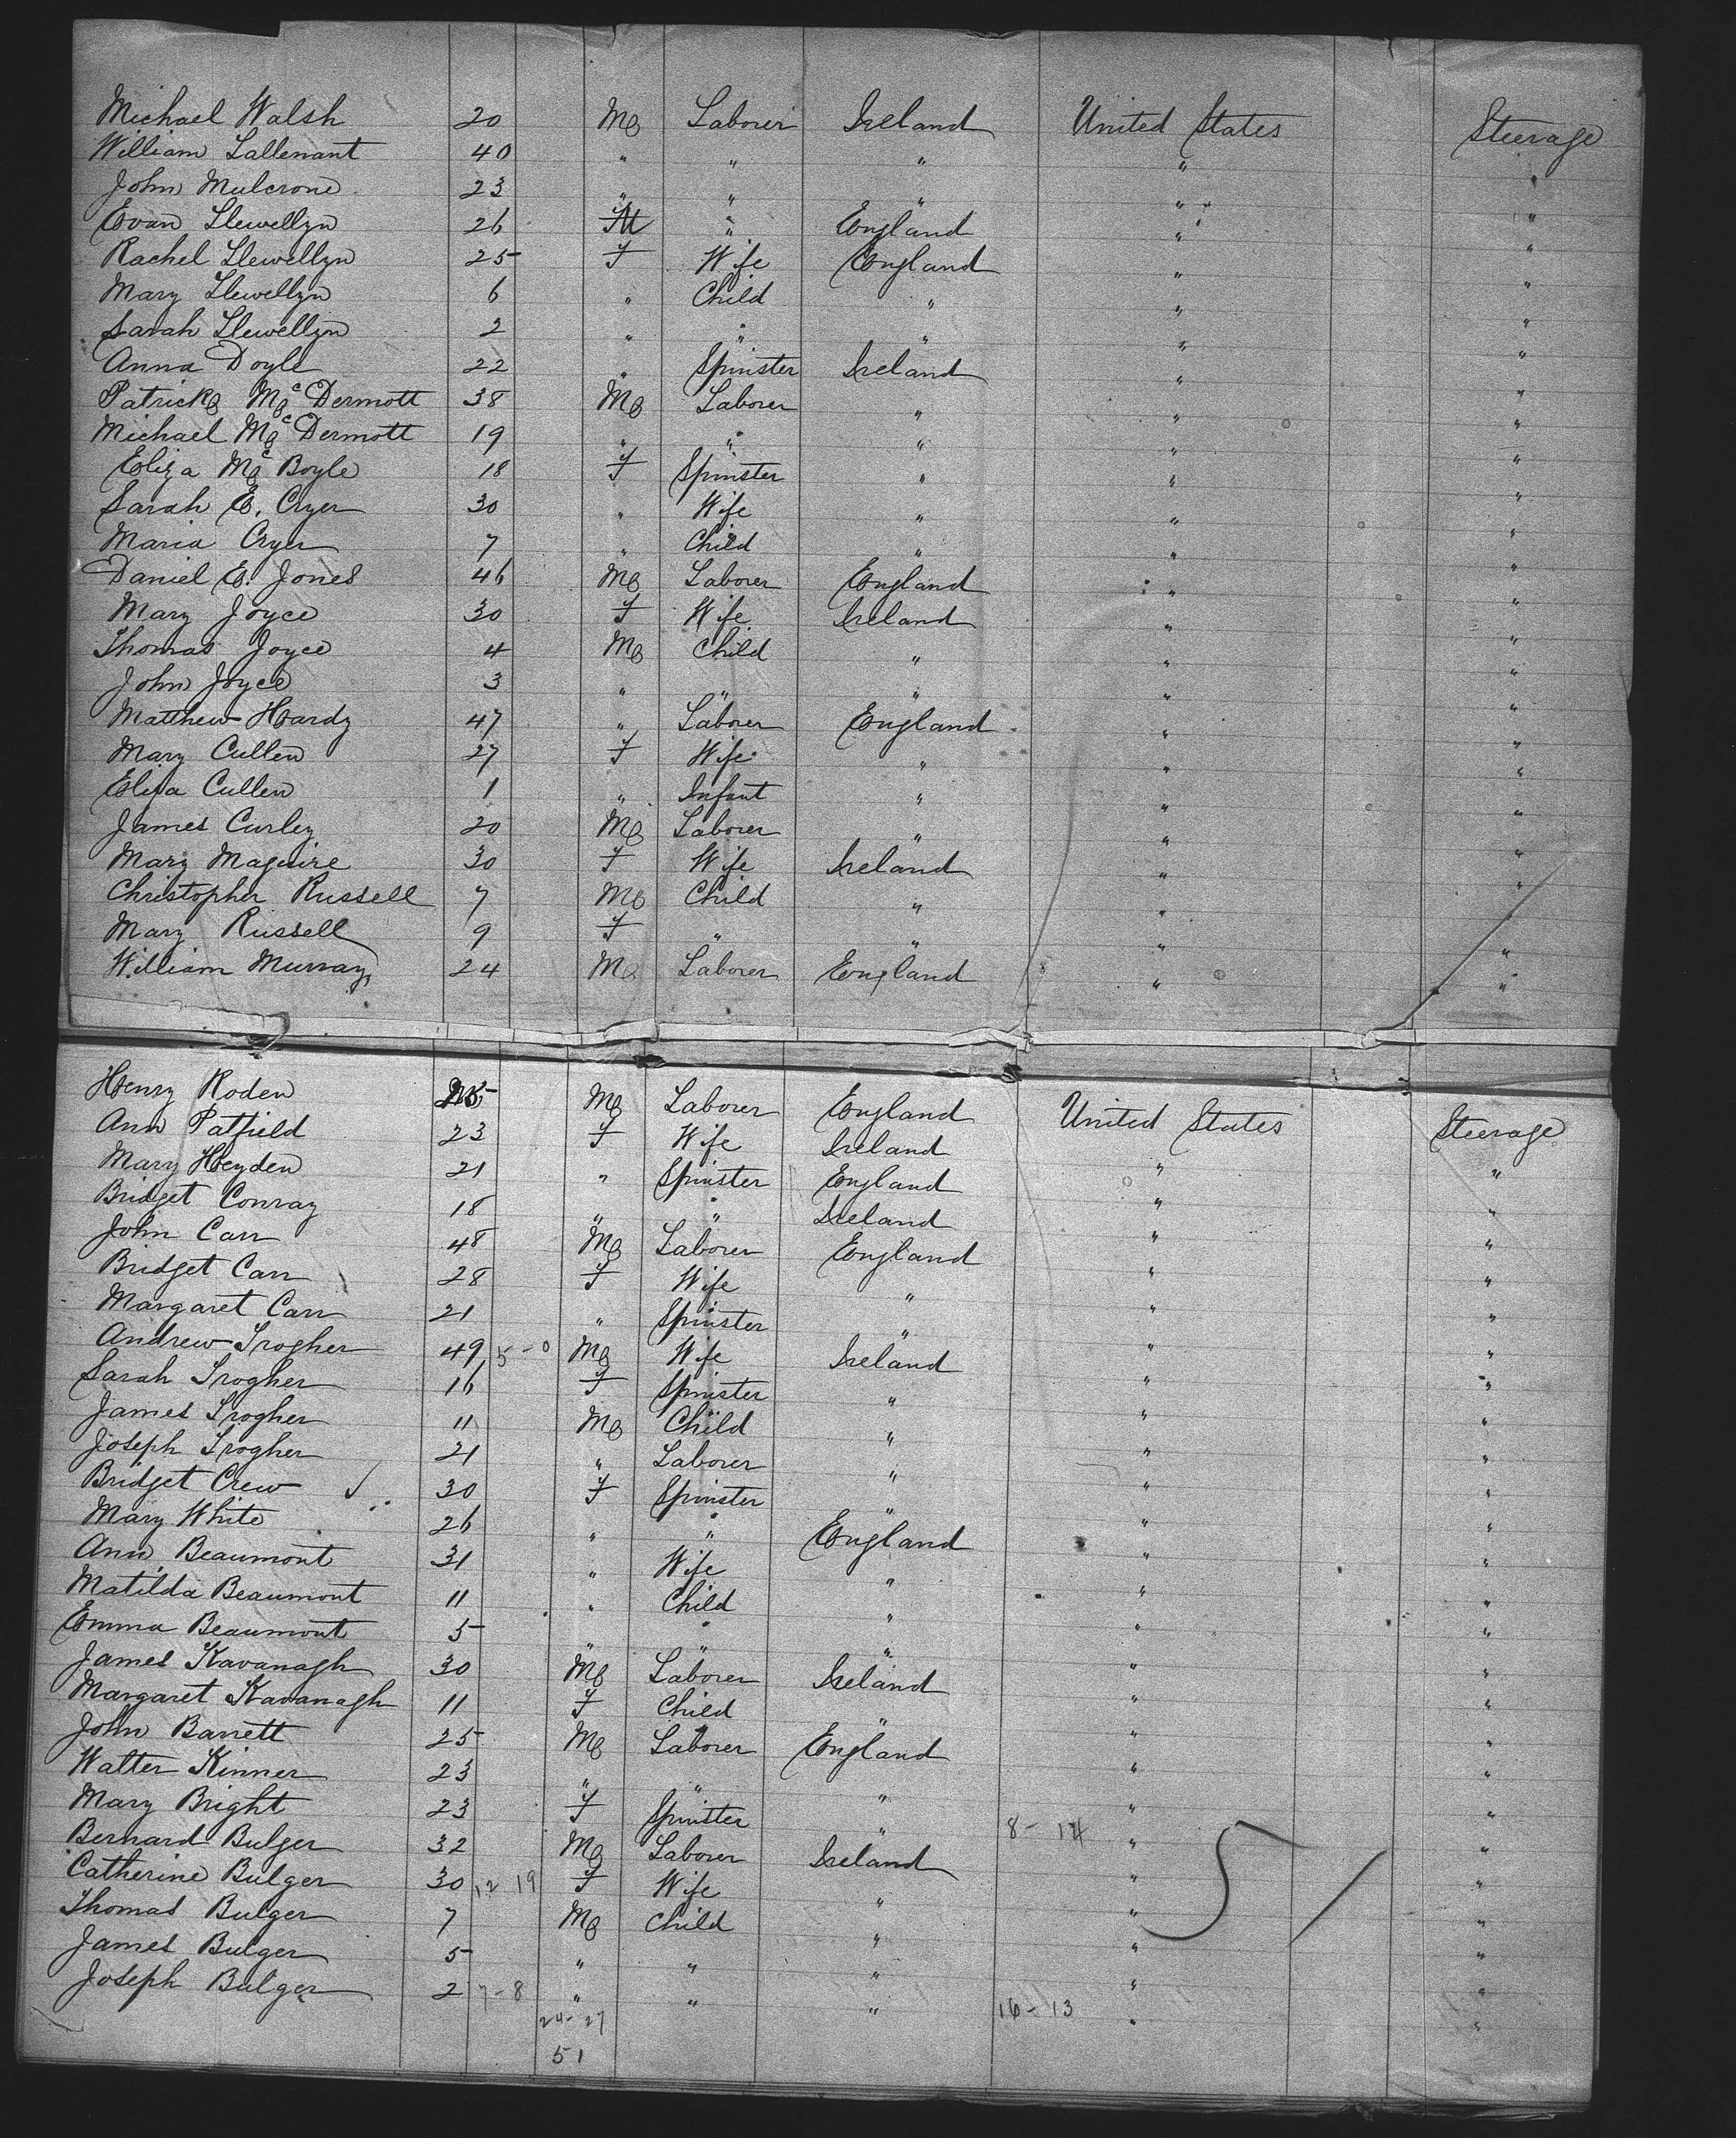 Michael Walsh 20 M Laborer Ireland United States Steerage
William Lallenant 40 " " " " "
John Mulcrone 23 " " " " "
Evan Llewellyn 26 M " England " "
Rachel Llewellyn 25 F Wife England " "
Mary Llewellyn 6 " Child " " "
Sarah Llewellyn 2 " " " " "
Anna Doyle 22 " Spinster Ireland " "
Patrick McDermott 38 M Laborer " " "
Michael McDermott 19 " " " " "
Eliza McBoyle 18 F Spinster " " "
Sarah E. Cryer 30 " Wife " " "
Maria Cryer 7 " Child " " "
Daniel E. Jones 46 M Laborer England " "
Mary Joyce 30 F Wife Ireland " "
Thomas Joyce 4 M Child " " "
John Joyce 3 " " " " "
Matthew Hardy 47 " Laborer England " "
Mary Cullen 27 F Wife " " "
Eliza Cullen 1 " Infant " " "
James Curley 20 M Laborer " " "
Mary Maguire 30 F Wife Ireland " "
Christopher Russell 7 M Child " " "
Mary Russell 9 F " " " "
William Murray 24 M Laborer England " "
Henry Roden M Laborer England United States Steerage
Ann Patfield 23 F Wife Ireland " "
Mary Heyden 21 " Spinster England " "
Bridget Conray 18 " " Ireland " "
John Carr 48 M Laborer England " "
Bridget Carr 28 F Wife " " "
Margaret Carr 21 " Spinster " " "
Andrew Trogher 49 5-0 M Wife Ireland " "
Sarah Trogher 16 F Spinster " " "
James Trogher 11 M Child " " "
Joseph Trogher 21 " Laborer " " "
Bridget Crew 30 F Spinster " " "
Mary White 26 " " England " "
Ann Beaumont 31 " Wife " " "
Matilda Beaumont 11 " Child " " "
Emma Beaumont 5 " " " " "
James Kavanagh 30 M Laborer Ireland " "
Margaret Kavanagh 11 F Child " " "
John Barrett 25 M Laborer England " "
Walter Kinner 23 " " " " "
Mary Bright 23 F Spinster " 8-14 " "
Bernard Bulger 32 M Laborer Ireland " "
Catherine Bulger 30 12 19 F Wife " " "
Thomas Bulger 7 M Child " " "
James Bulger 5 " " " " "
Joseph Bulger 2 7-8 " " " 16-13 " "
24-27
51
51